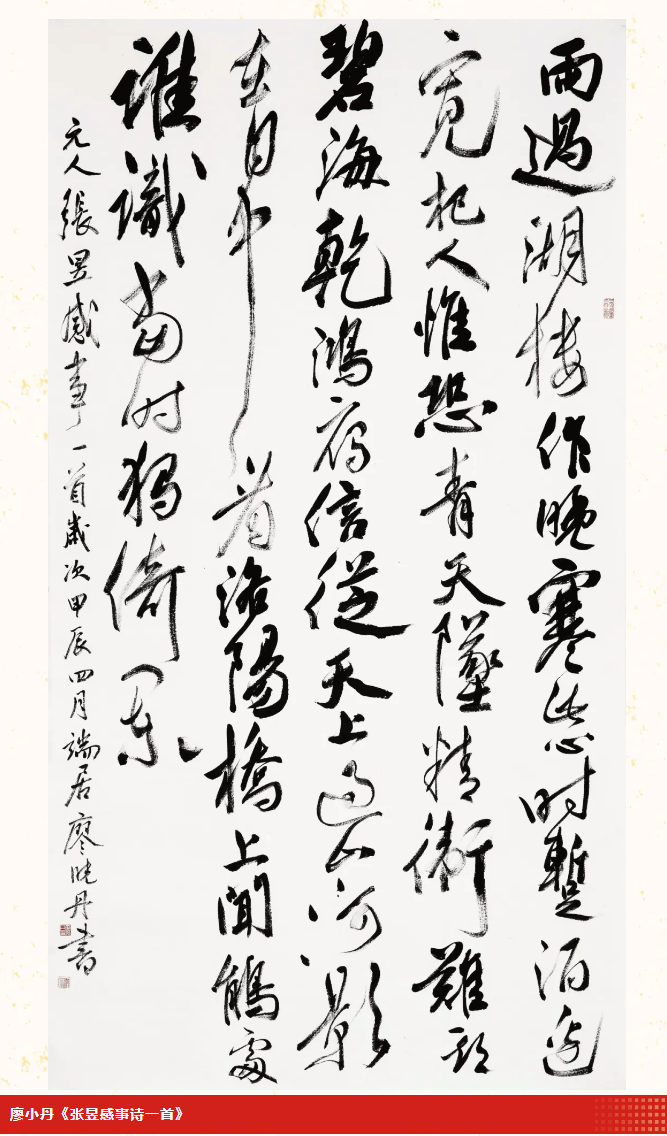 雨過湖楼作晚寒此心时暫酒边
寬杞人惟恐青天墜精衛難期
碧海乾鴻雁信從天上過山河影
在月中看洛陽橋上聞鵑處
誰識當时獨倚闌
元人張昱感事一首歲次甲辰四月端居廖晓丹書
廖小丹《张昱感事诗一首》